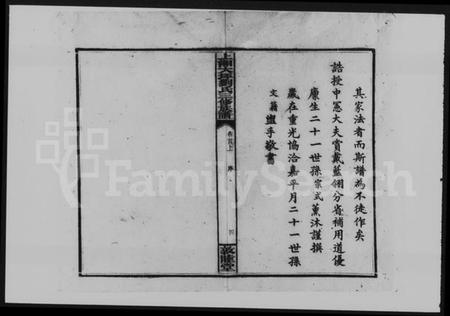 其家法者而斯譜為不徒作矣
誥授中憲大夫賞戴藍翎分省補用道優
廩生二十一世孫家式薰沐謹撰
歲在重光協洽嘉平月二十一世孫
文籍盥手敬書
上湘大坪劉氏三修族譜
卷首上
序
四
敦睦堂
FamilySearch